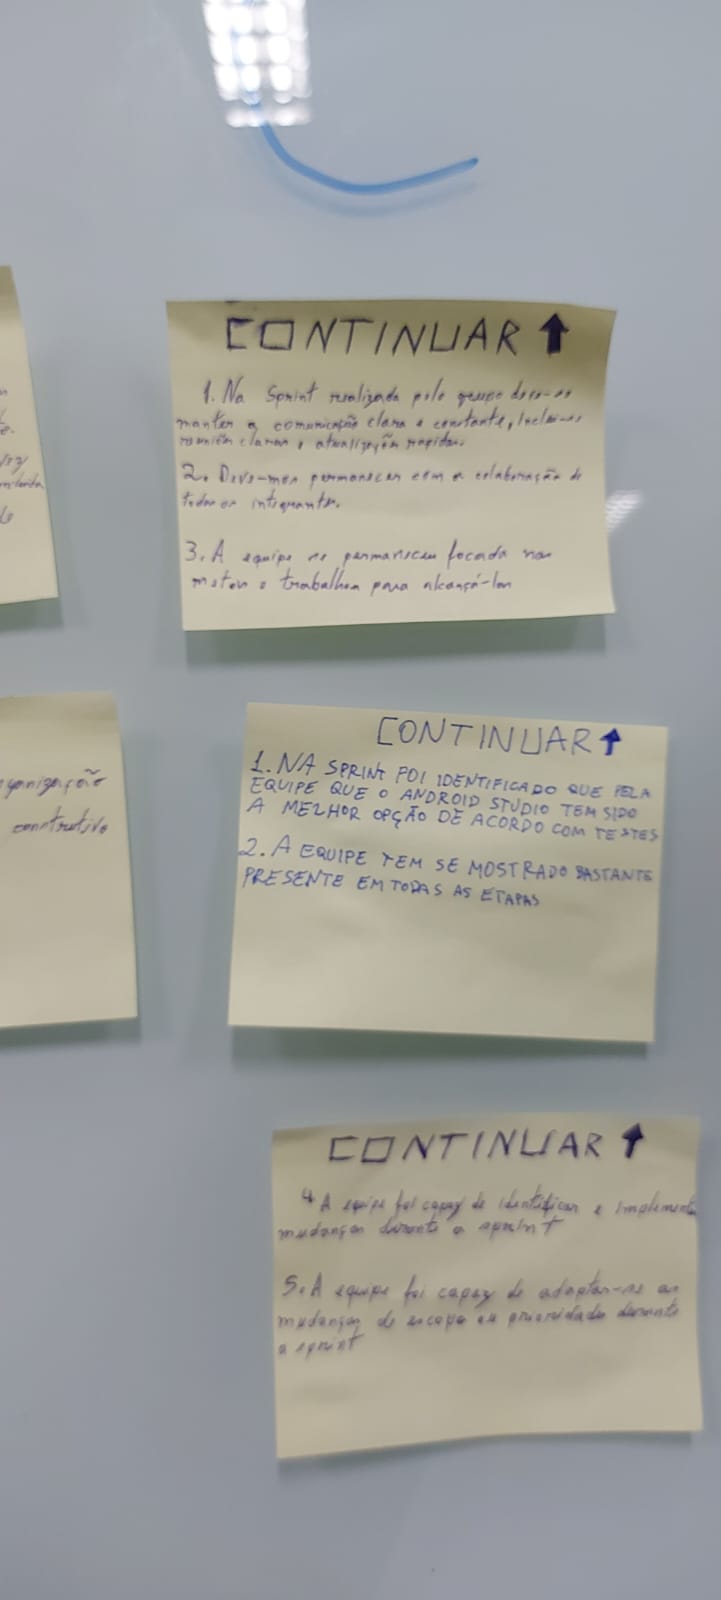 CONTINUAR ↑
1. Na Sprint realizada pelo grupo deve-se
manter a comunicação clara e constante,
reunião claras e atualização rápidas.
2. Deve-mos permanecer com a colaboração de
todos os integrantes.
3. A equipe se permaneceu focada nas
metas e trabalhou para alcançá-las
ganização
construtivo
CONTINUAR ↑
1. NA SPRINT FOI IDENTIFICADO QUE PELA
EQUIPE QUE O ANDROID STUDIO TEM SIDO
A MELHOR OPÇÃO DE ACORDO COM TESTES
2. A EQUIPE TEM SE MOSTRADO BASTANTE
PRESENTE EM TODAS AS ETAPAS
CONTINUAR ↑
4 A equipe foi capaz de identificar e implementa
mudanças durante a sprint
5. A equipe foi capaz de adaptar-se as
mudanças de escopo ou prioridade durante
a sprint